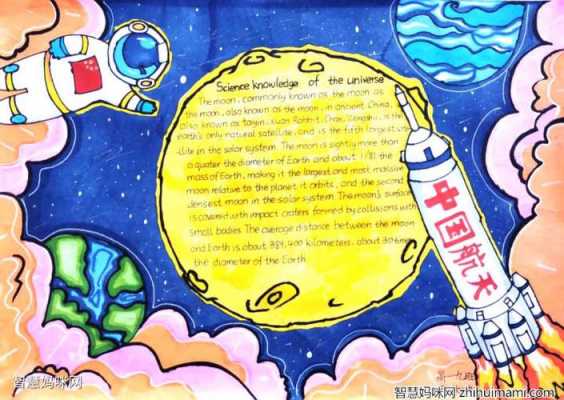 Science knowledge of the universe
The moon, commonly known as the moon as
the moon, also known as the moon, in ancient China,
also known as taiyin, xuan Rabbit, Chan, is the
earth's only natural satellite, and is the fifth largest
-llite in the solar system. The moon is slightly more than
a quater the diameter of Earth and about 1/81 the
mass of Earth, making it the largest and most massive
moon relative to the planet it orbits, and the second
densest moon in the solar system. The moon's surface
is covered with impact craters formed by collisions with
small bodies. The average distance between the moon
and Earth is about 384,400 kilometers, about 30 times
the diameter of the Earth.
中国航天
智慧妈咪网
智慧妈咪网 zhihuimami.com